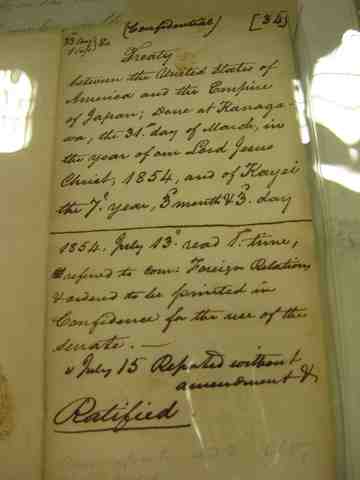 (Confidential) [34]
33 Cong
1 Sess
Treaty
between the United States of
America and the Empire
of Japan; Done at Kanaga-
wa, the 31st day of March, in
the year of our Lord Jesus
Christ, 1854, and of Kayei
the 7th year, 3d month & 3d day
1854. July 13th read 1st time,
referred to com: Foreign Relations
& ordered to be printed in
Confidence for the use of the
senate. —
" July 15 Reported without
amendment &
Ratified